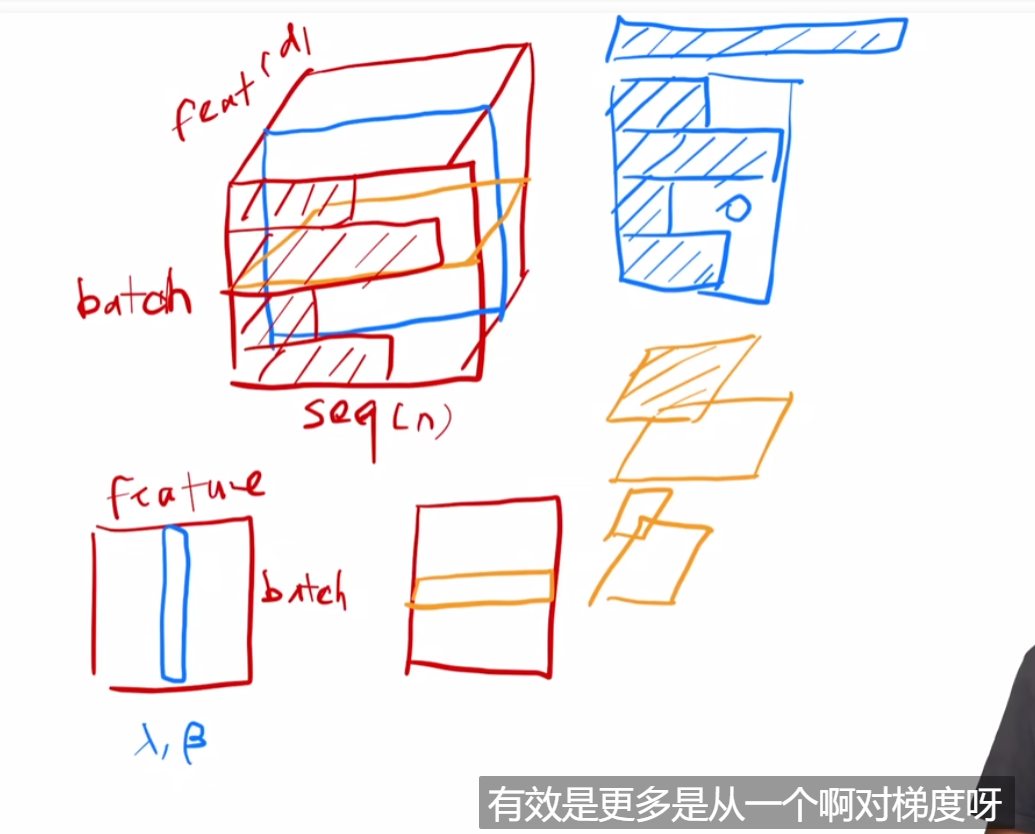 feat(d)
batch
seq(n)
feature
batch
λ, β
有效是更多是从一个啊对梯度呀